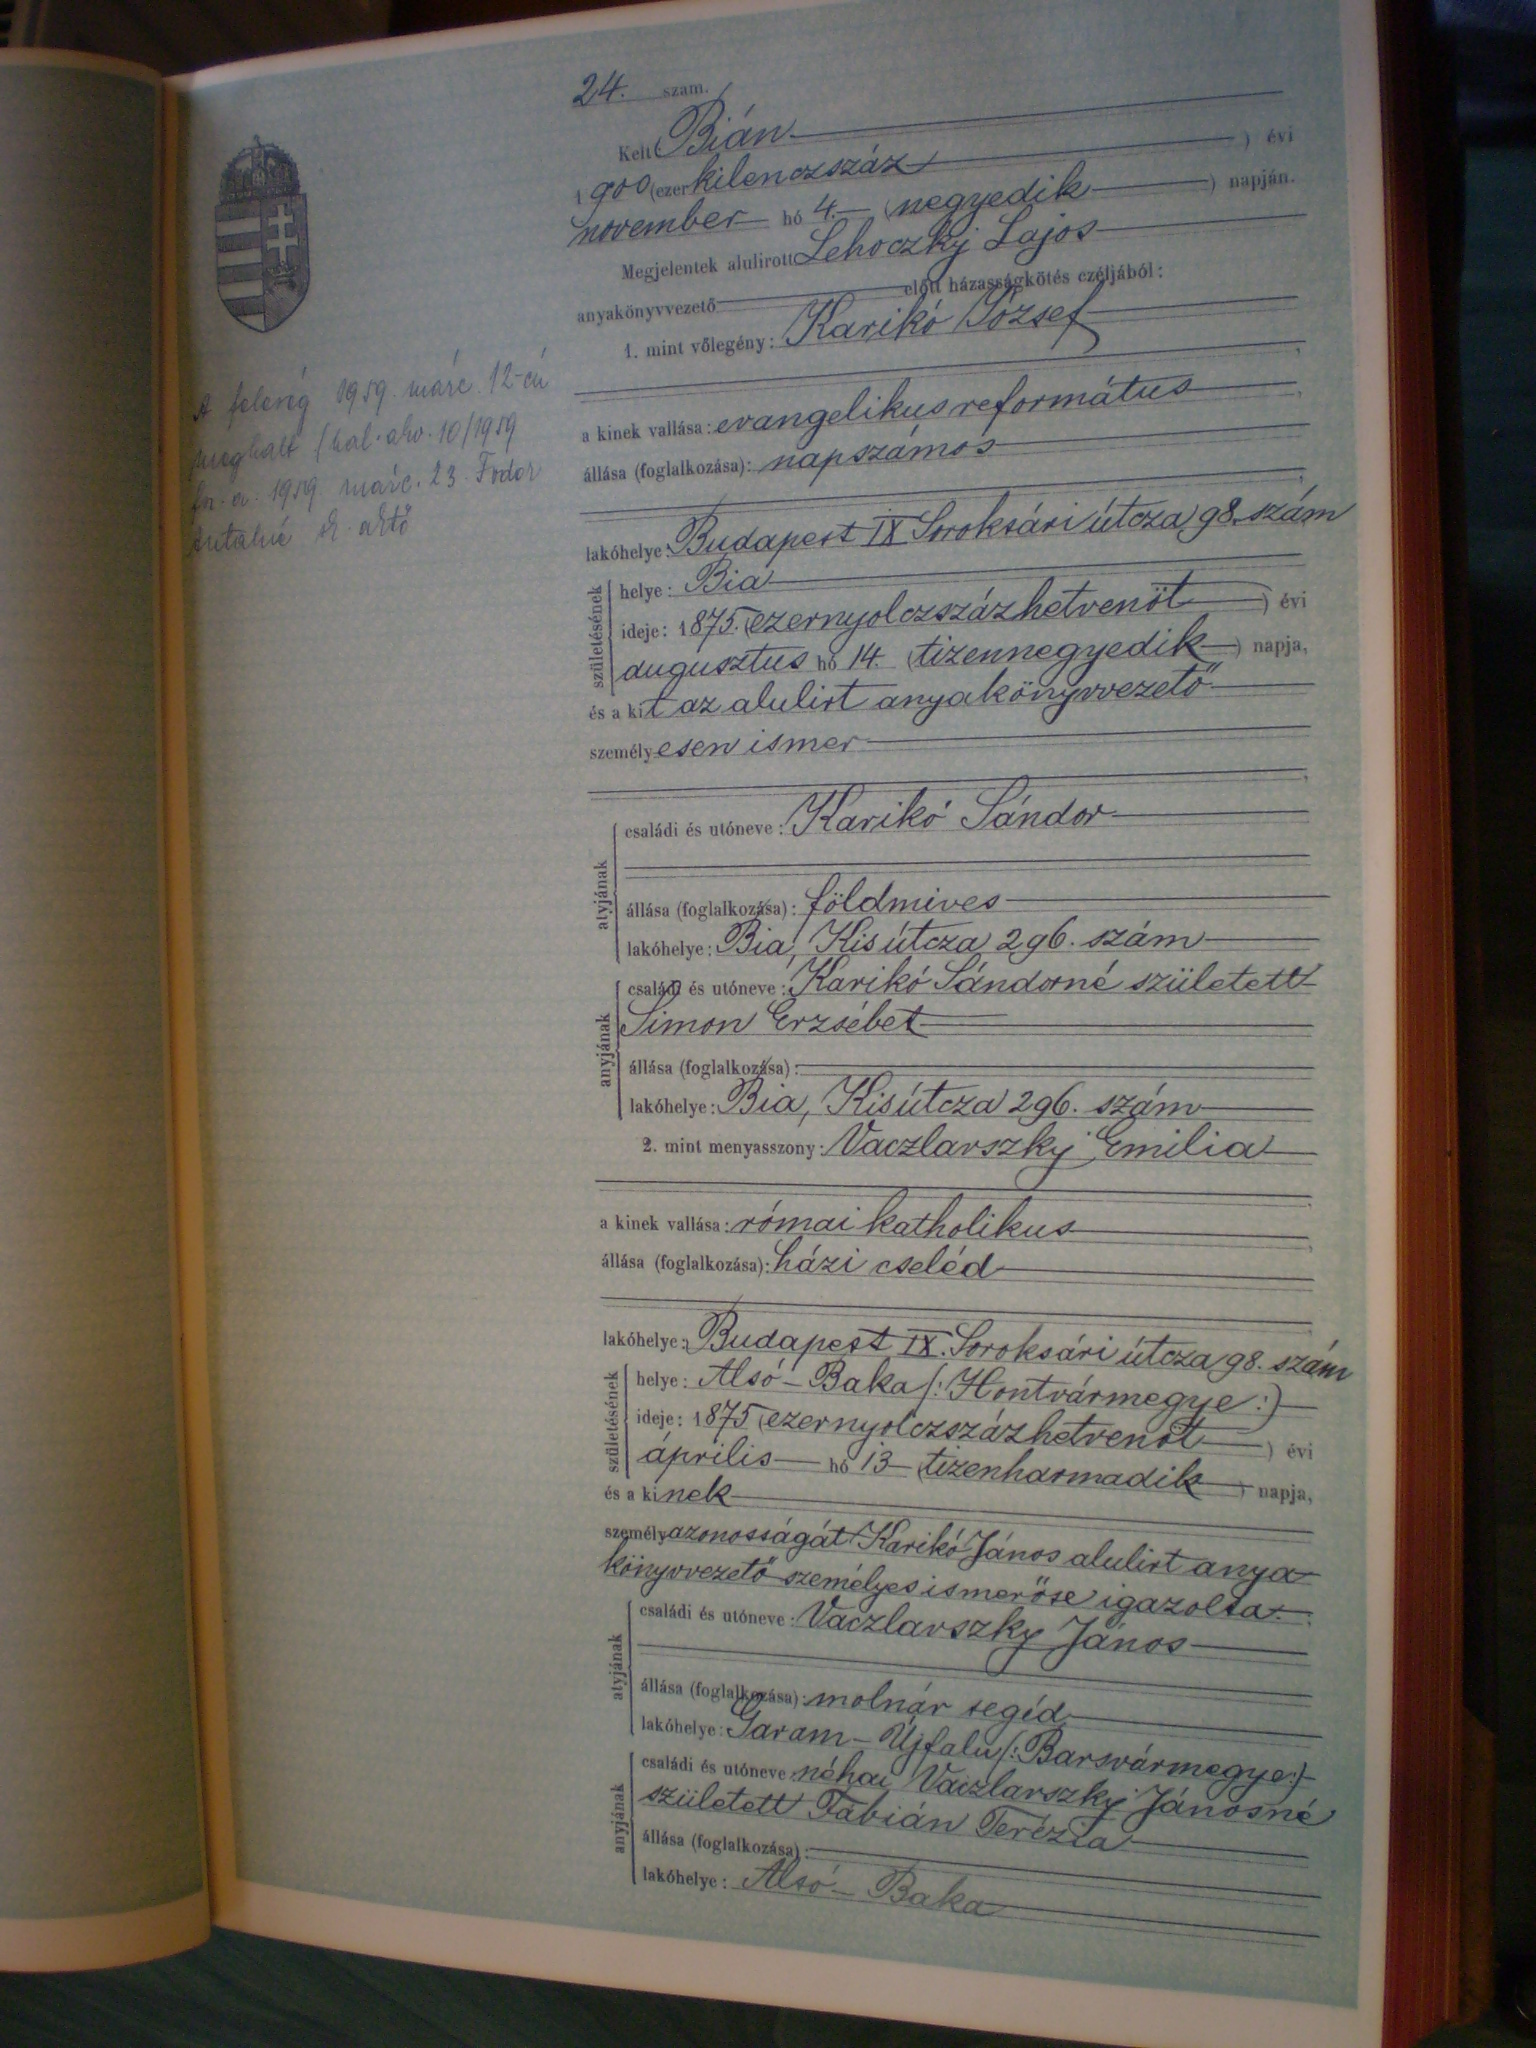 24. szám.
Kelt Bián
1900 (ezerkilenczszáz) évi
november hó 4. (negyedik) napján.
Megjelentek alulirott Lehoczky Lajos
anyakönyvvezető előtt házasságkötés czéljából:
1. mint vőlegény: Karikó József
a kinek vallása: evangelikus református
állása (foglalkozása): napszámos
lakóhelye: Budapest IX Soroksári útcza 98. szám
születésének
helye: Bia
ideje: 1875. (ezernyolczszázhetvenöt) évi
augusztus hó 14. (tizennegyedik) napja,
és a kit az alulirt anyakönyvvezető
személyesen ismer
atyjának
családi és utóneve: Karikó Sándor
állása (foglalkozása): földmives
lakóhelye: Bia, Kisútcza 296. szám
anyjának
családi és utóneve: Karikó Sándorné született
Simon Erzsébet
állása (foglalkozása):
lakóhelye: Bia, Kisútcza 296. szám
2. mint menyasszony: Vaczlavszky Emilia
a kinek vallása: római katholikus
állása (foglalkozása): házi cseléd
lakóhelye: Budapest IX. Soroksári útcza 98. szám
születésének
helye: Alsó-Baka (: Hontvármegye :)
ideje: 1875 (ezernyolczszázhetvenöt) évi
április hó 13 (tizenharmadik) napja,
és a kinek
személyazonosságát Karikó János alulirt anya
könyvvezető személyes ismerőse igazolta.
atyjának
családi és utóneve: Vaczlavszky János
állása (foglalkozása): molnár segéd
lakóhelye: Garam-Újfalu (: Barsvármegye :)
anyjának
családi és utóneve: néhai Vaczlavszky Jánosné
született Fábián Terézia
állása (foglalkozása):
lakóhelye: Alsó-Baka
A feleség 1959. márc 12-én
meghalt (hal. akv. 10/1959
1959. márc. 23. Fodor
Antalné